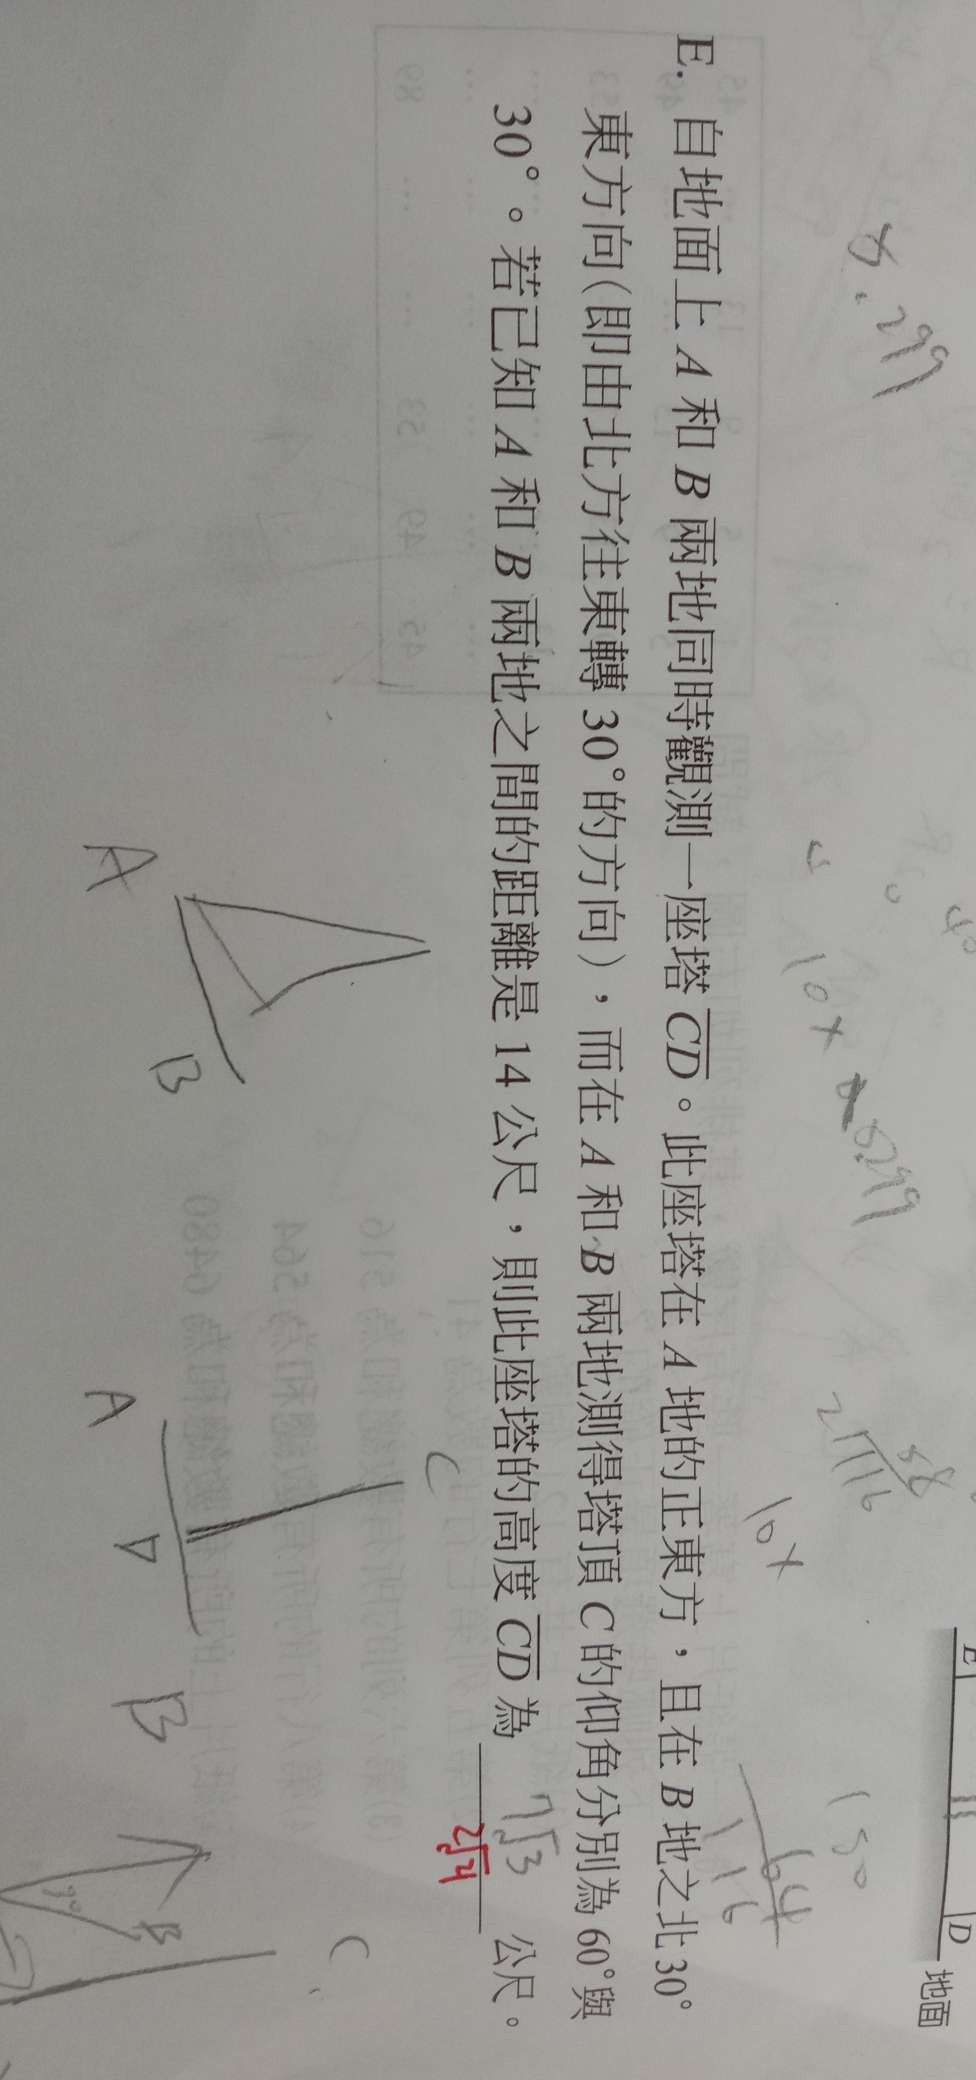 8.299
10×8.299
58
2√116
10×
150
64
116
E
D
地面
E. 自地面上 A 和 B 兩地同時觀測一座塔 CD。此座塔在 A 地的正東方，且在 B 地之北30°
東方向(即由北方往東轉30°的方向)，而在 A 和 B 兩地測得塔頂 C 的仰角分別為60°與
30°。若已知 A 和 B 兩地之間的距離是14公尺，則此座塔的高度 CD 為 7√3 公尺。
2√21
A
B
A
C
D
B
B
C